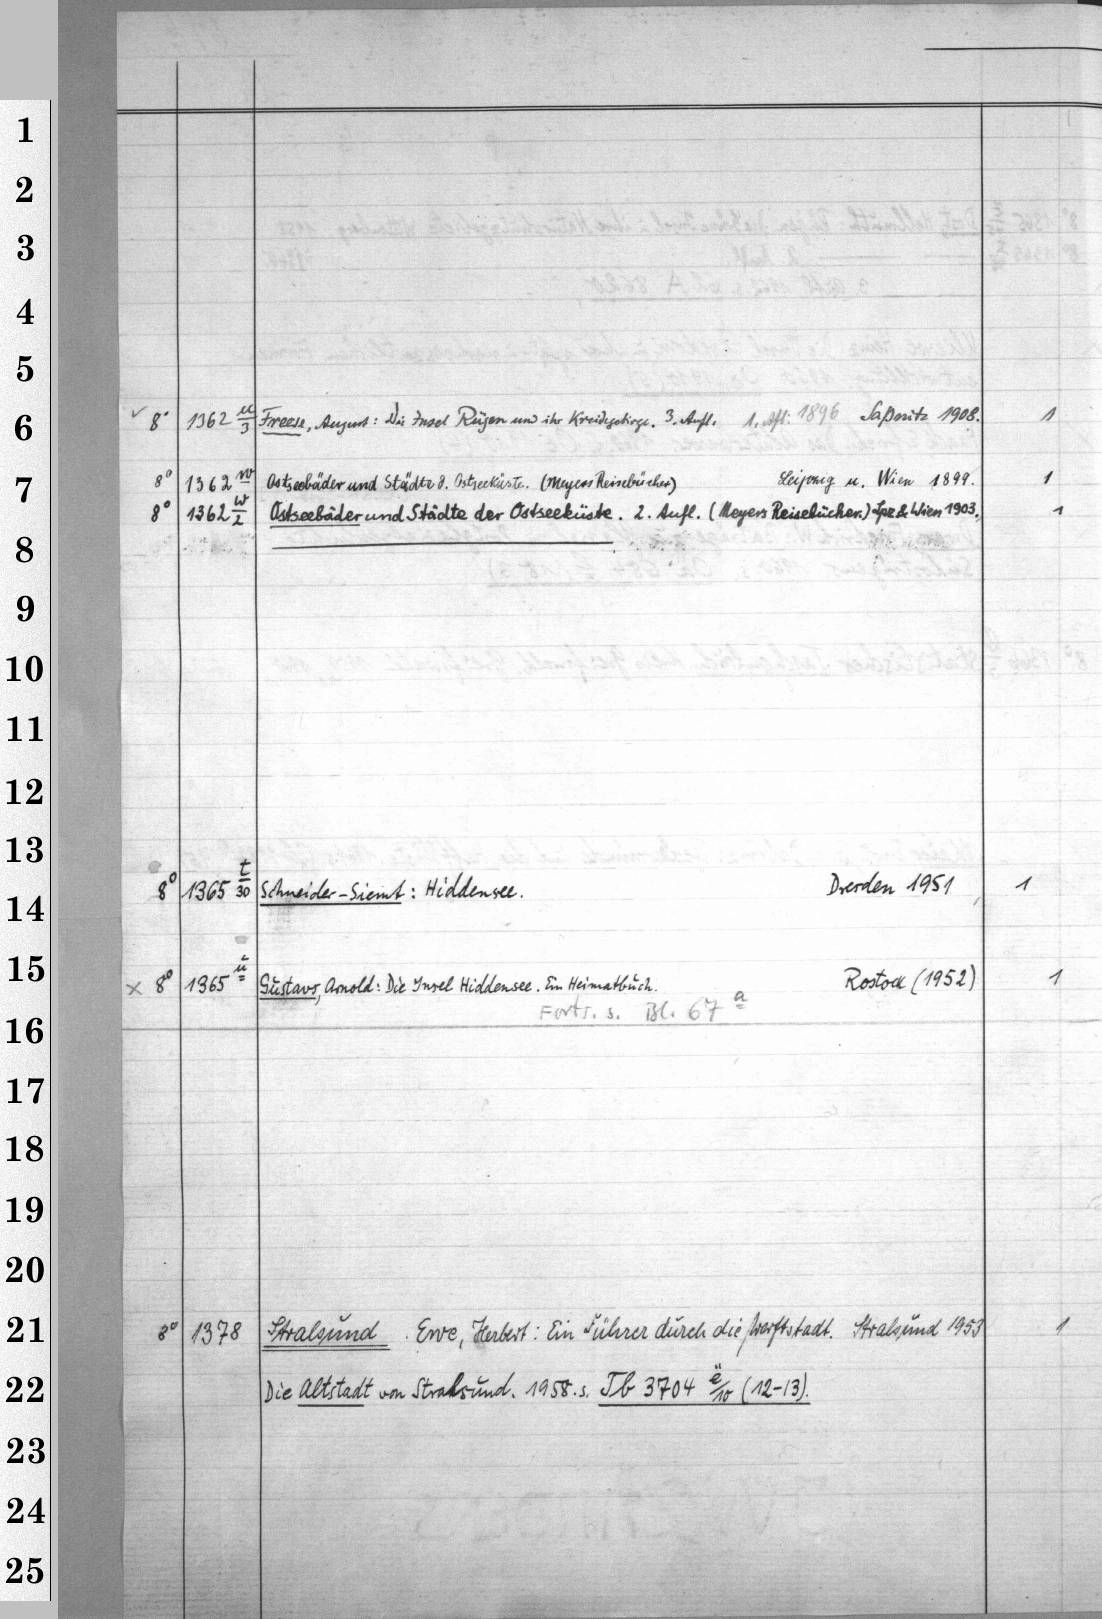 1
2
3
4
5
6
7
8
9
10
11
12
13
14
15
16
17
18
19
20
21
22
23
24
25
8° 1362 u/3 Freese, August: Die Insel Rügen und ihr Kreidegebirge. 3. Aufl. 1. Afl: 1896 Saßnitz 1908. 1
8° 1362 w Ostseebäder und Städte d. Ostseeküste. (Meyers Reisebücher) Leipzig u. Wien 1899. 1
8° 1362 w/2 Ostseebäder und Städte der Ostseeküste. 2. Aufl. (Meyers Reisebücher.) Lpz & Wien 1903. 1
8° 1365 t/30 Schneider-Siemt: Hiddensee. Dresden 1951 1
× 8° 1365 ü Gustavs, Arnold: Die Insel Hiddensee. Ein Heimatbuch. Rostock (1952) 1
Forts. s. Bl. 67 a
8° 1378 Stralsund. Ewe, Herbert: Ein Führer durch die Werftstadt. Stralsund 1953 1
Die Altstadt von Stralsund. 1958. s. Tb 3704 ë/10 (12-13).